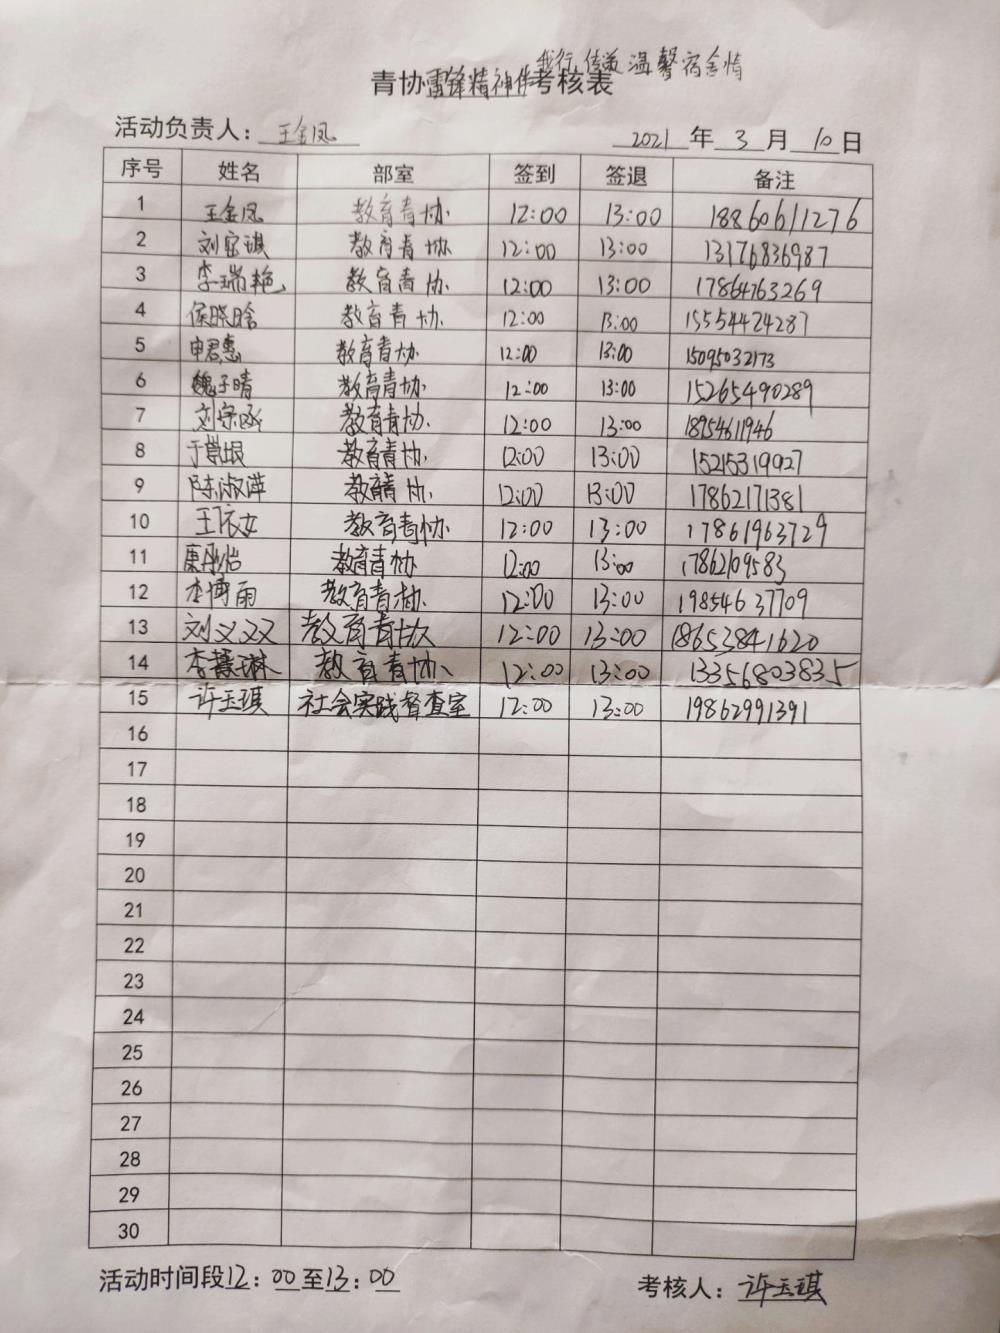 我行,传递温馨宿舍情
青协雷锋精神伴考核表
活动负责人: 王金凤 2021 年 3 月 10 日
序号 姓名 部室 签到 签退 备注
1 王金凤 教育青协 12:00 13:00 18860611276
2 刘宝琪 教育青协 12:00 13:00 13176836987
3 李瑞艳 教育青协 12:00 13:00 17864763269
4 侯晓晗 教育青协 12:00 13:00 15554424287
5 申君惠 教育青协 12:00 13:00 15095032173
6 魏子晴 教育青协 12:00 13:00 15265490289
7 刘宗函 教育青协 12:00 13:00 18954611946
8 教育青协 12:00 13:00 15215319927
9 陈淑萍 教育青协 12:00 13:00 17862171381
10 王依女 教育青协 12:00 13:00 17861963729
11 康彤怡 教育青协 12:00 13:00 17862109583
12 李博雨 教育青协 12:00 13:00 19854637709
13 刘义双 教育青协 12:00 13:00 18653841620
14 李慕琳 教育青协 12:00 13:00 13356803835
15 许玉琪 社会实践督查室 12:00 13:00 19862991391
16
17
18
19
20
21
22
23
24
25
26
27
28
29
30
活动时间段12:00至13:00 考核人: 许玉琪